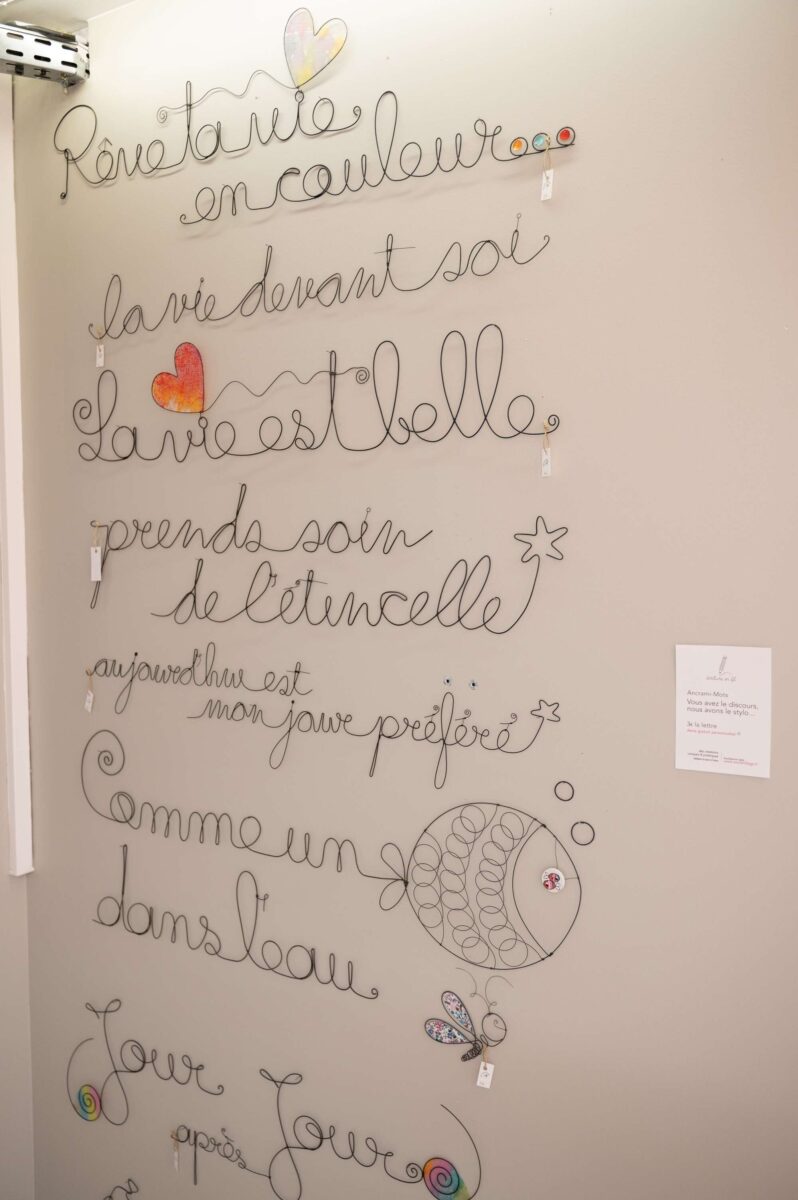 Rêve ta vie
en couleur...
la vie devant soi
La vie est belle
prends soin
de l'étincelle
aujourd'hui est
mon jour préféré
Comme un
dans l'eau
Jour
après Jour
Ancrami-Mots
Vous avez le discours,
nous avons le stylo ...
3€ la lettre